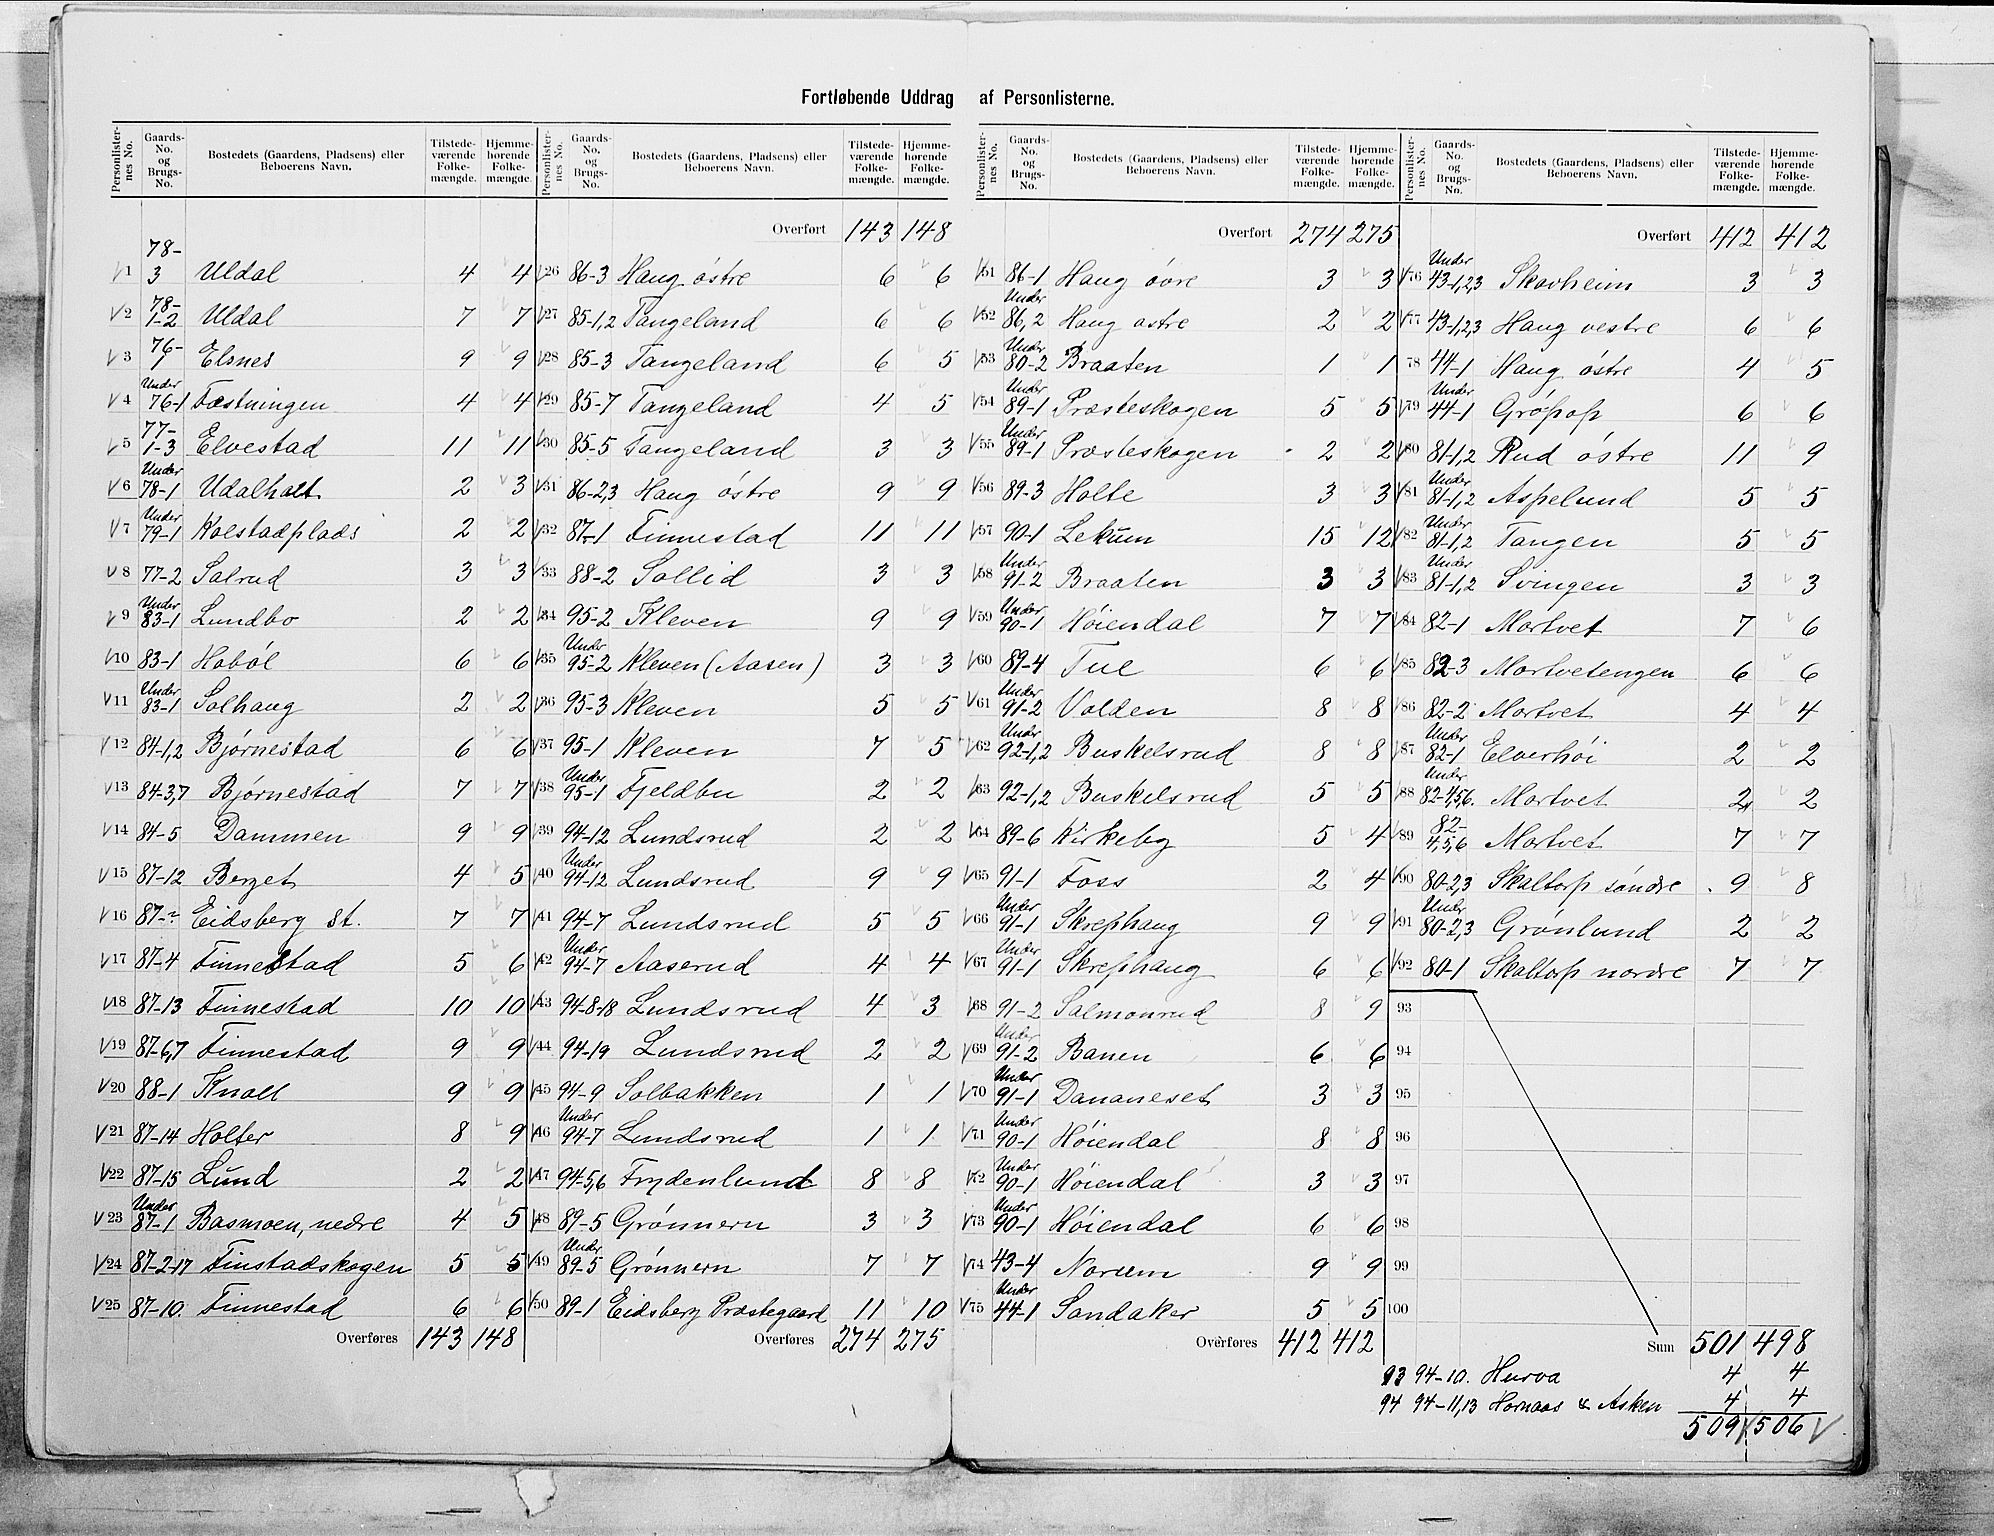 Fortløbende Uddrag af Personlisterne.
Personlister-nes No. Gaards-No. og Brugs-No. Bostedets (Gaardens, Pladsens) eller Beboerens Navn. Tilstede-værende Folke-mængde. Hjemme-hørende Folke-mængde.
1 78-3 Uldal 4 4
2 78-1-2 Uldal 7 7
3 76-1 Elsnes 9 9
4 Under 76-1 Fæstningen 4 4
5 77-1-3 Elvestad 11 11
6 Under 78-1 Udalhalt 2 3
7 Under 79-1 Kolstadplads 2 2
8 77-2 Solrud 3 3
9 Under 83-1 Lundbo 2 2
10 83-1 Hobøl 6 6
11 Under 83-1 Solhaug 2 2
12 84-1,2 Bjørnestad 6 6
13 84-3,7 Bjørnestad 7 7
14 84-5 Dammen 9 9
15 87-12 Berget 4 5
16 87-? Eidsberg st. 7 7
17 87-4 Finnestad 5 6
18 87-13 Finnestad 10 10
19 87-6,7 Finnestad 9 9
20 88-1 Knoll 9 9
21 87-14 Holter 8 9
22 87-15 Lund 2 2
23 Under 87-1 Basmoen, nedre 4 5
24 87-2-17 Finstadskogen 5 5
25 87-10. Finnestad 6 6
Overføres 143 148
Personlister-nes No. Gaards-No. og Brugs-No. Bostedets (Gaardens, Pladsens) eller Beboerens Navn. Tilstede-værende Folke-mængde. Hjemme-hørende Folke-mængde.
Overført 143 148
26 86-3 Haug østre 6 6
27 85-1,2 Tangeland 6 6
28 85-3 Tangeland 6 5
29 85-7 Tangeland 4 5
30 85-5 Tangeland 3 3
31 86-2,3 Haug østre 9 9
32 87-1 Finnestad 11 11
33 88-2 Sollid 3 3
34 95-2 Kleven 9 9
35 Under 95-2 Kleven (Aasen) 3 3
36 95-3 Kleven 5 5
37 95-1 Kleven 7 5
38 Under 95-1 Fjeldbu 2 2
39 94-12 Lundsrud 2 2
40 Under 94-12 Lundsrud 9 9
41 94-7 Lundsrud 5 5
42 Under 94-7 Aaserud 4 4
43 94-8-18 Lundsrud 4 3
44 94-19 Lundsrud 2 2
45 94-9 Solbakken 1 1
46 Under 94-7 Lundsrud 1 1
47 94-5,6 Frydenlund 8 8
48 89-5 Grønnern 3 3
49 Under 89-5 Grønnern 7 7
50 89-1 Eidsberg Præstegaard 11 10
Overføres 274 275
Personlister-nes No. Gaards-No. og Brugs-No. Bostedets (Gaardens, Pladsens) eller Beboerens Navn. Tilstede-værende Folke-mængde. Hjemme-hørende Folke-mængde.
Overført 274 275
51 86-1 Haug øvre 3 3
52 Under 86,2 Haug østre 2 2
53 Under 80-2 Braaten 1 1
54 Under 89-1 Præsteskogen 5 5
55 Under 89-1 Præsteskogen 2 2
56 89-3 Holte 3 3
57 90-1 Lekum 15 12
58 Under 91-2 Braaten 3 3
59 Under 90-1 Høiendal 7 7
60 89-4 Tue 6 6
61 Under 91-2 Volden 8 8
62 Under 92-1,2 Buskelsrud 8 8
63 92-1,2 Buskelsrud 5 5
64 89-6 Kirkeby 5 4
65 91-1 Foss 2 4
66 Under 91-1 Skrephaug 9 9
67 Under 91-1 Skrephaug 6 6
68 91-2 Salmonrud 8 9
69 Under 91-2 Banen 6 6
70 Under 91-1 Dananeset 3 3
71 Under 90-1 Høiendal 8 8
72 Under 90-1 Høiendal 3 3
73 Under 90-1 Høiendal 6 6
74 43-4 Norum 9 9
75 Under 44-1 Sandaker 5 5
Overføres 412 412
Personlister-nes No. Gaards-No. og Brugs-No. Bostedets (Gaardens, Pladsens) eller Beboerens Navn. Tilstede-værende Folke-mængde. Hjemme-hørende Folke-mængde.
Overført 412 412
76 Under 43-1,2,3 Skovheim 3 3
77 43-1,2,3 Haug vestre 6 6
78 44-1 Haug østre 4 5
79 Under 44-1 Grøpop 6 6
80 81-1,2 Rud østre 11 9
81 Under 81-1,2 Aspelund 5 5
82 Under 81-1,2 Tangen 5 5
83 Under 81-1,2 Svingen 3 3
84 82-1 Mortvet 7 6
85 82-3 Mortvetengen 6 6
86 82-2 Mortvet 4 4
87 Under 82-1 Elverhøi 2 2
88 Under 82-4,5,6. Mortvet 2 2
89 82-4,5,6 Mortvet 7 7
90 80-2,3 Skaltorp søndre 9 8
91 Under 80-2,3 Grønlund 2 2
92 80-1 Skaltorp nordre 7 7
93
94
95
96
97
98
99
100
Sum 501 498
93 94-10. Hurva 4 4
94 94-11,13 Hornaas & Asken 4 4
509 506